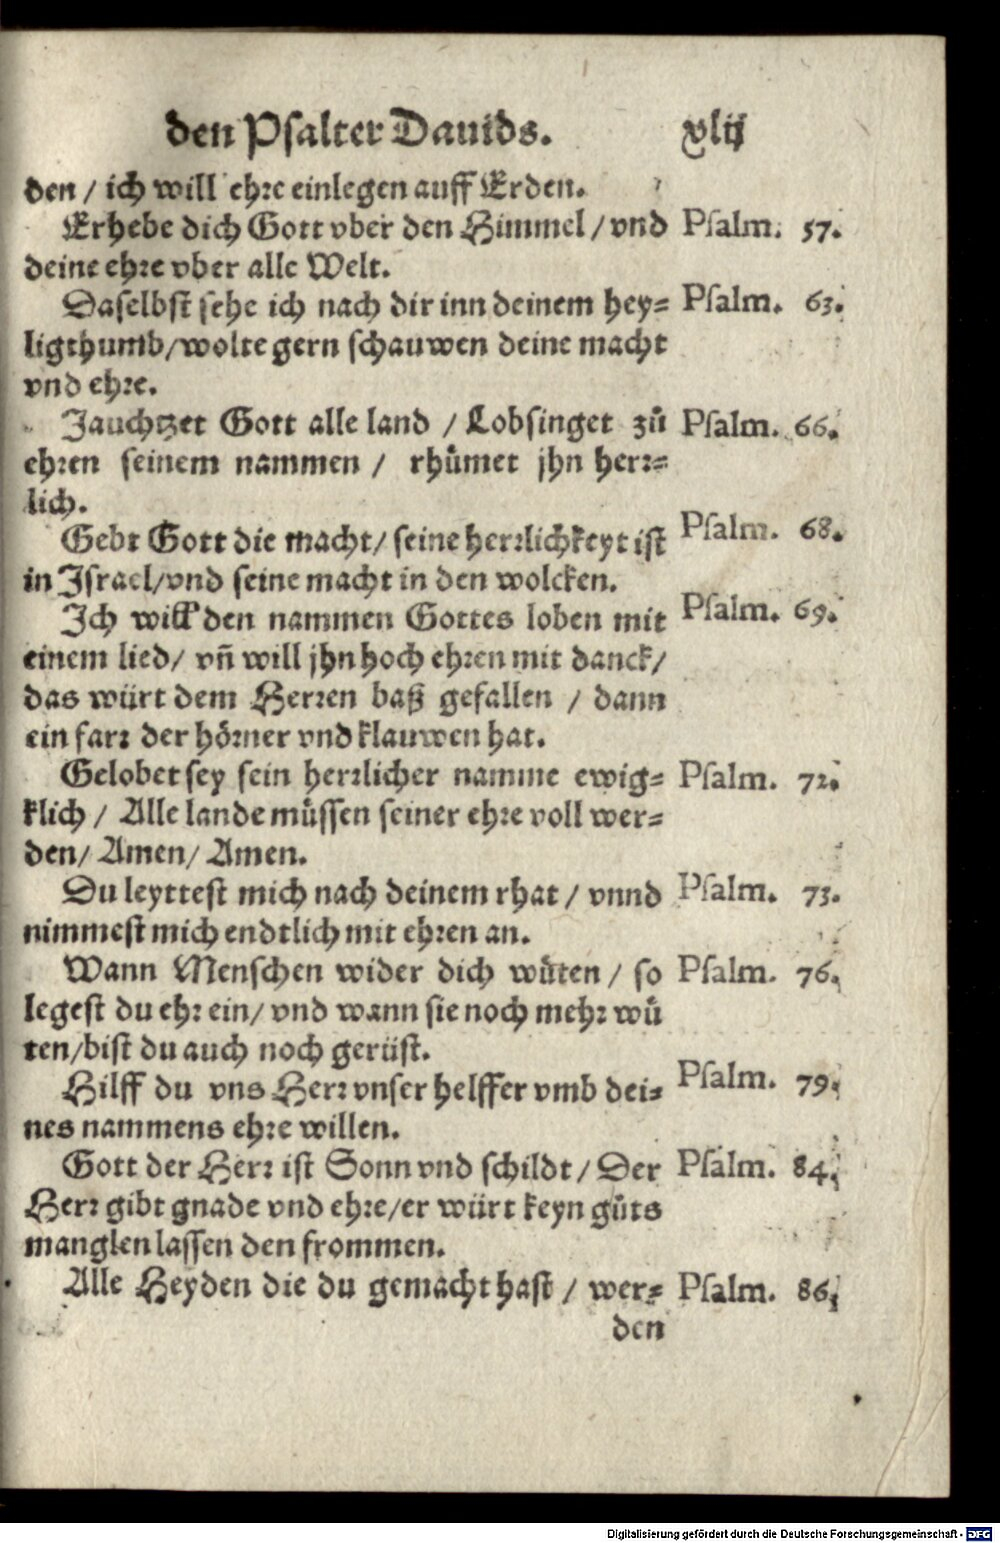 den Psalter Dauids. xlij
den / ich will ehre einlegen auff Erden.
Erhebe dich Gott vber den Himmel / vnd Psalm. 57.
deine ehre vber alle Welt.
Daselbst sehe ich nach dir inn deinem hey= Psalm. 63.
ligthumb/wolte gern schauwen deine macht
vnd ehre.
Jauchtzet Gott alle land / Lobsinget zů Psalm. 66.
ehren seinem nammen / rhůmet jhn herr=
lich.
Gebt Gott die macht/ seine herrlichkeyt ist Psalm. 68.
in Israel/vnd seine macht in den wolcken.
Ich will den nammen Gottes loben mit Psalm. 69.
einem lied/ vñ will jhn hoch ehren mit danck/
das würt dem Herren baß gefallen / dann
ein farr der hörner vnd klauwen hat.
Gelobet sey sein herrlicher namme ewig= Psalm. 72.
klich / Alle lande müssen seiner ehre voll wer=
den/ Amen/ Amen.
Du leyttest mich nach deinem rhat / vnnd Psalm. 73.
nimmest mich endtlich mit ehren an.
Wann Menschen wider dich wůten / so Psalm. 76.
legest du ehr ein/ vnd wann sie noch mehr wů
ten/bist du auch noch gerüst.
Hilff du vns Herr vnser helffer vmb dei= Psalm. 79.
nes nammens ehre willen.
Gott der Herr ist Sonn vnd schildt / Der Psalm. 84.
Herr gibt gnade vnd ehre/er würt keyn gůts
manglen lassen den frommen.
Alle Heyden die du gemacht hast / wer= Psalm. 86.
den
Digitalisierung gefördert durch die Deutsche Forschungsgemeinschaft - DFG